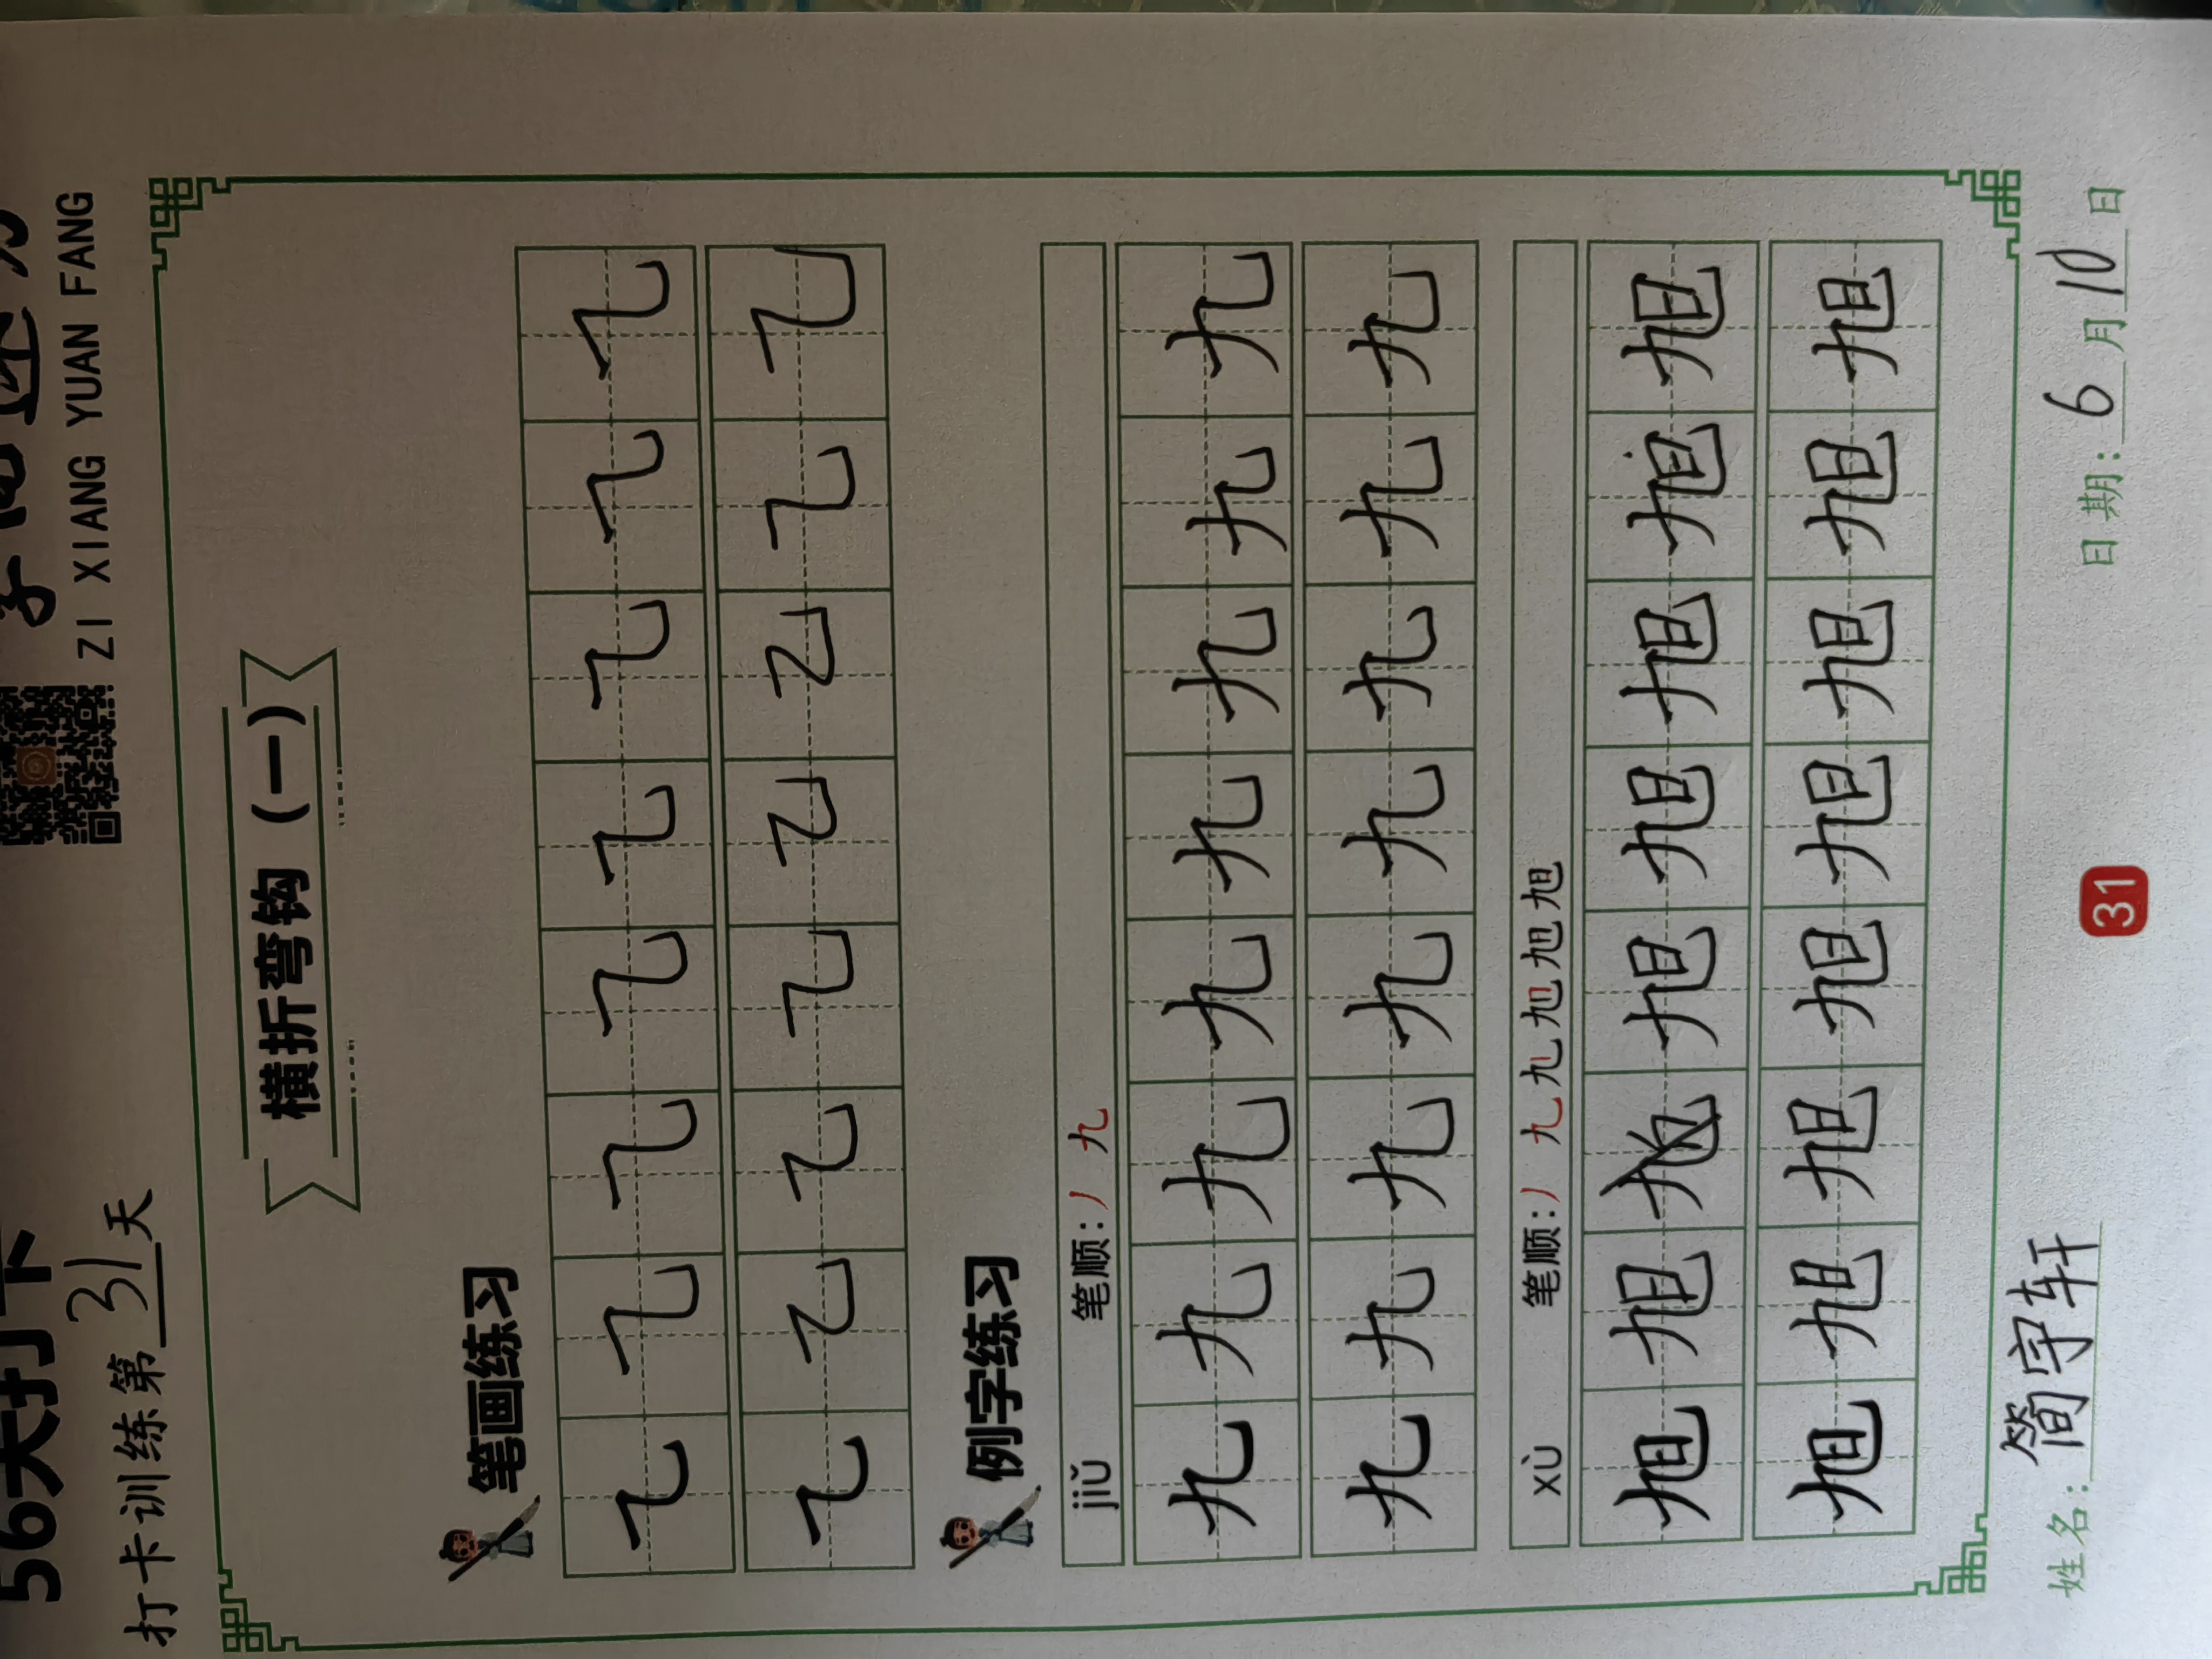 56天打卡
ZI XIANG YUAN FANG
打卡训练第31天
横折弯钩（一）
笔画练习
㇈㇈㇈㇈㇈㇈㇈㇈
㇈㇈㇈㇈㇈㇈㇈㇈
例字练习
jiǔ 笔顺：丿 九
九九九九九九九九
九九九九九九九九
xù 笔顺：丿 九 九 旭 旭 旭
旭旭旭旭旭旭旭
旭旭旭旭旭旭旭旭
姓名：简宇轩 日期：6月10日
31